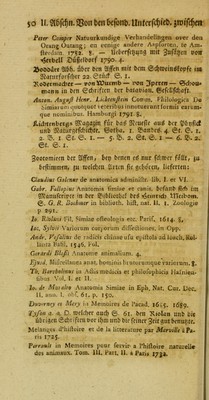 50 II. Abschn. Von den besond. Unterschied. zwischen
Peter Camper Natuurkundige Verhandelingen over den
Orang Outang; en eenige andere Aapsoorten, te Am-
sterdam 1782. 8. — Uebersetzung mit Zusätzen von
Hervell Düsseldorf 1790. 4.
Boddärs Abh. über den Affen mit dem Schweinskopfe im
Naturforscher 22. Stück S. 1.
Radermacher — von Wurmb — von Ipern — Schou-
mann in den Schriften der batavian. Gesellschaft.
August. Angust Henr. Lichtenstein Comm. Philologica De
Simiarum quotquot veteribus innotuerunt formis earum-
que nominibus. Hamburgi 1791 8.
Lichtenbergs Magazin für das Neueste aus der Physick
und Naturgeschichte, Gotha. 1. Bandes 4. St. S. 1.
2. B. 1. St. S. 1. — 5. B. 2. St. S. 1 — 6. B. St. 1.
S. 1.
Zootomien der Affen, bey denen es nur schwer fällt, zu
bestimmen, zu welchen Arten sie gehören, lieferten:
Claudius Galenus de anatomicis administr. lib. I. et VI.
Gabr. Fallopius Anatomia simiae et canis, befand sich im
Manuscripte in der Bibliothek des Heinrich Meibom.
S. G. R. Boehmer in biblioth. hist. nat. II. 1. Zoologie
p. 291.
Io. Riolani fil. Simiae osteologia etc. Paris. 1614. 8.
Iac. Sylvii Variorum corporum dissectiones, in Opp.
Andr. Vesalius de radicis chinae usu epistola ad Ioach. Roe-
lants Basil. 1546, Fol.
Gerardi Blasii Anatome animalium. 4.
Ejusd. Miscellanea anat. hominis brutorumque variorum. 8.
Th. Bartholinus in Actis medicis et philosophicis Hafnien-
sibus Vol. I. et II.
Io. de Muralto Anatomia Simiae in Eph. Nat. Cur. Dec.
II. ann. 1. obs. 61. p. 150.
Duverney et Mery in Memoires de l'acad. 1665. 1689.
Tyson a. a. O. welcher auch S. 61. den Riolan und die
übrigen Schriften vor ihm und bis seiner Zeit gut benutzte.
Melanges d'Histoire et de la litterature par Marville à Pa-
ris 1725.
Perrault in Memoires pour servir a l'histoire naturelle
des animaux. Tom. III, Part. II. à Paris 1732.